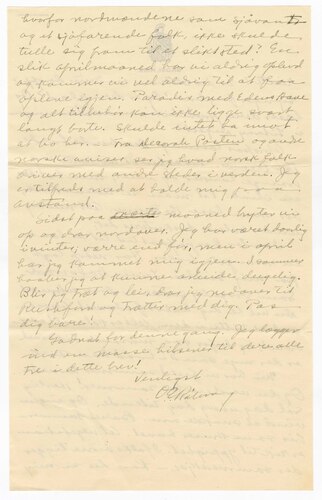 hvorfor nordmændene som sjøvant
og et sjøfarende folk, ikke skulde
tulle sig frem til et slikt sted? En
slik april maaned har vi aldrig oplevd
og kommer vi vel aldrig til at faa
opleve igjen. Paradis med Edens Have
og alt tilbehør kan ikke ligge svært
langt borte. Skulde intet ha imot
at bo her. — Fra Decorah Posten og andre
norske aviser, ser jeg hvad norsk folk
driver med andre steder i verden. Jeg
er tilfreds med at holde mig paa
avstand.
Sidst paa maaned bryter vi
op og drar nordover. Jeg har været daarlig
i vinter, værre end før, men i april
har jeg kommet mig igjen. I sommer
haaber jeg at kunne arbeide dygtig.
Blir jeg træt og lei, drar jeg nedover til
Rutherford og trætter med dig. Pas
dig bare!
Godnat for denne gang. Jeg lægger
ind en masse hilsener til dere alle
tre i dette brev!
Venligst